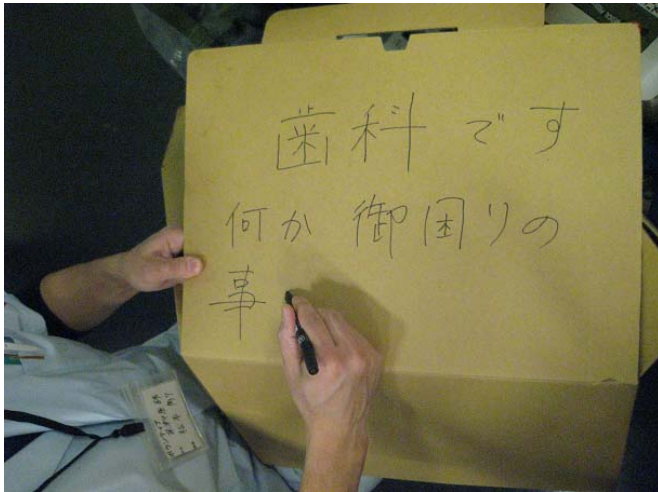 歯科です
何か御困りの
事